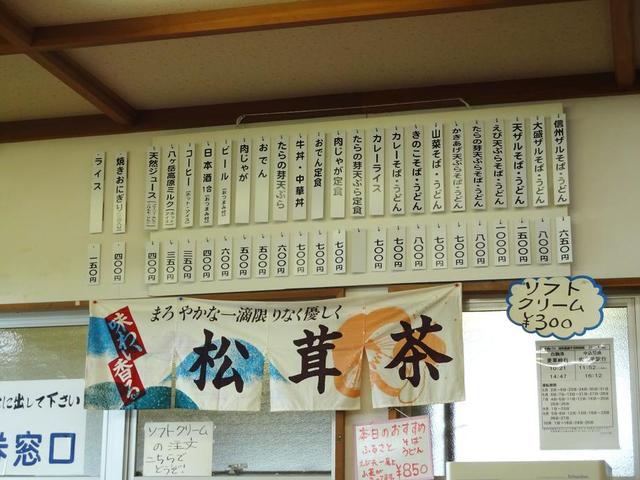 信州ザルそば・うどん 六五〇円
大盛ザルそば・うどん 八〇〇円
天ザルそば・うどん 一五〇円
えび天ぷらそば・うどん 一〇〇〇円
たらの芽天ぷらそば・うどん 八〇〇円
かきあげ天ぷらそば・うどん 七〇〇円
山菜そば・うどん 七〇〇円
きのこそば・うどん 八〇〇円
カレーそば・うどん 七〇〇円
カレーライス 七〇〇円
たらの芽天ぷら定食
肉じゃが定食 七〇〇円
おでん定食 七〇〇円
牛丼・中華丼 七〇〇円
たらの芽天ぷら 六〇〇円
おでん 五〇〇円
肉じゃが 五〇〇円
ビール(おつまみ付) 六〇〇円
日本酒1合(おつまみ付) 四〇〇円
コーヒー(ホット・アイス) 三五〇円
八ヶ岳高原ミルク 三五〇円
天然ジュース 四〇〇円
焼きおにぎり 四〇〇円
ライス 一五〇円
ソフト
クリーム
¥300
まろやかな一滴限りなく優しく
味わい香る
松茸茶
に出して下さい
券窓口
ソフトクリーム
の注文
こちらで
どうぞ!
本日のおすすめ
ふるさと そば
うどん
¥850
10:21 11:52
14:47 16:12